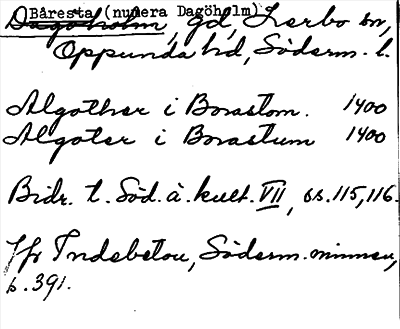 Båresta (numera Dagöholm)
Dagöholm, gd, Lerbo sn,
Oppunda hd, Söderm. l.
Algother i Borastom. 1400
Algoter i Borastum 1400
Bidr. t. Söd. ä. kult. VII, ss. 115, 116.
Jfr Indebetou, Söderm. minnen,
s. 391.